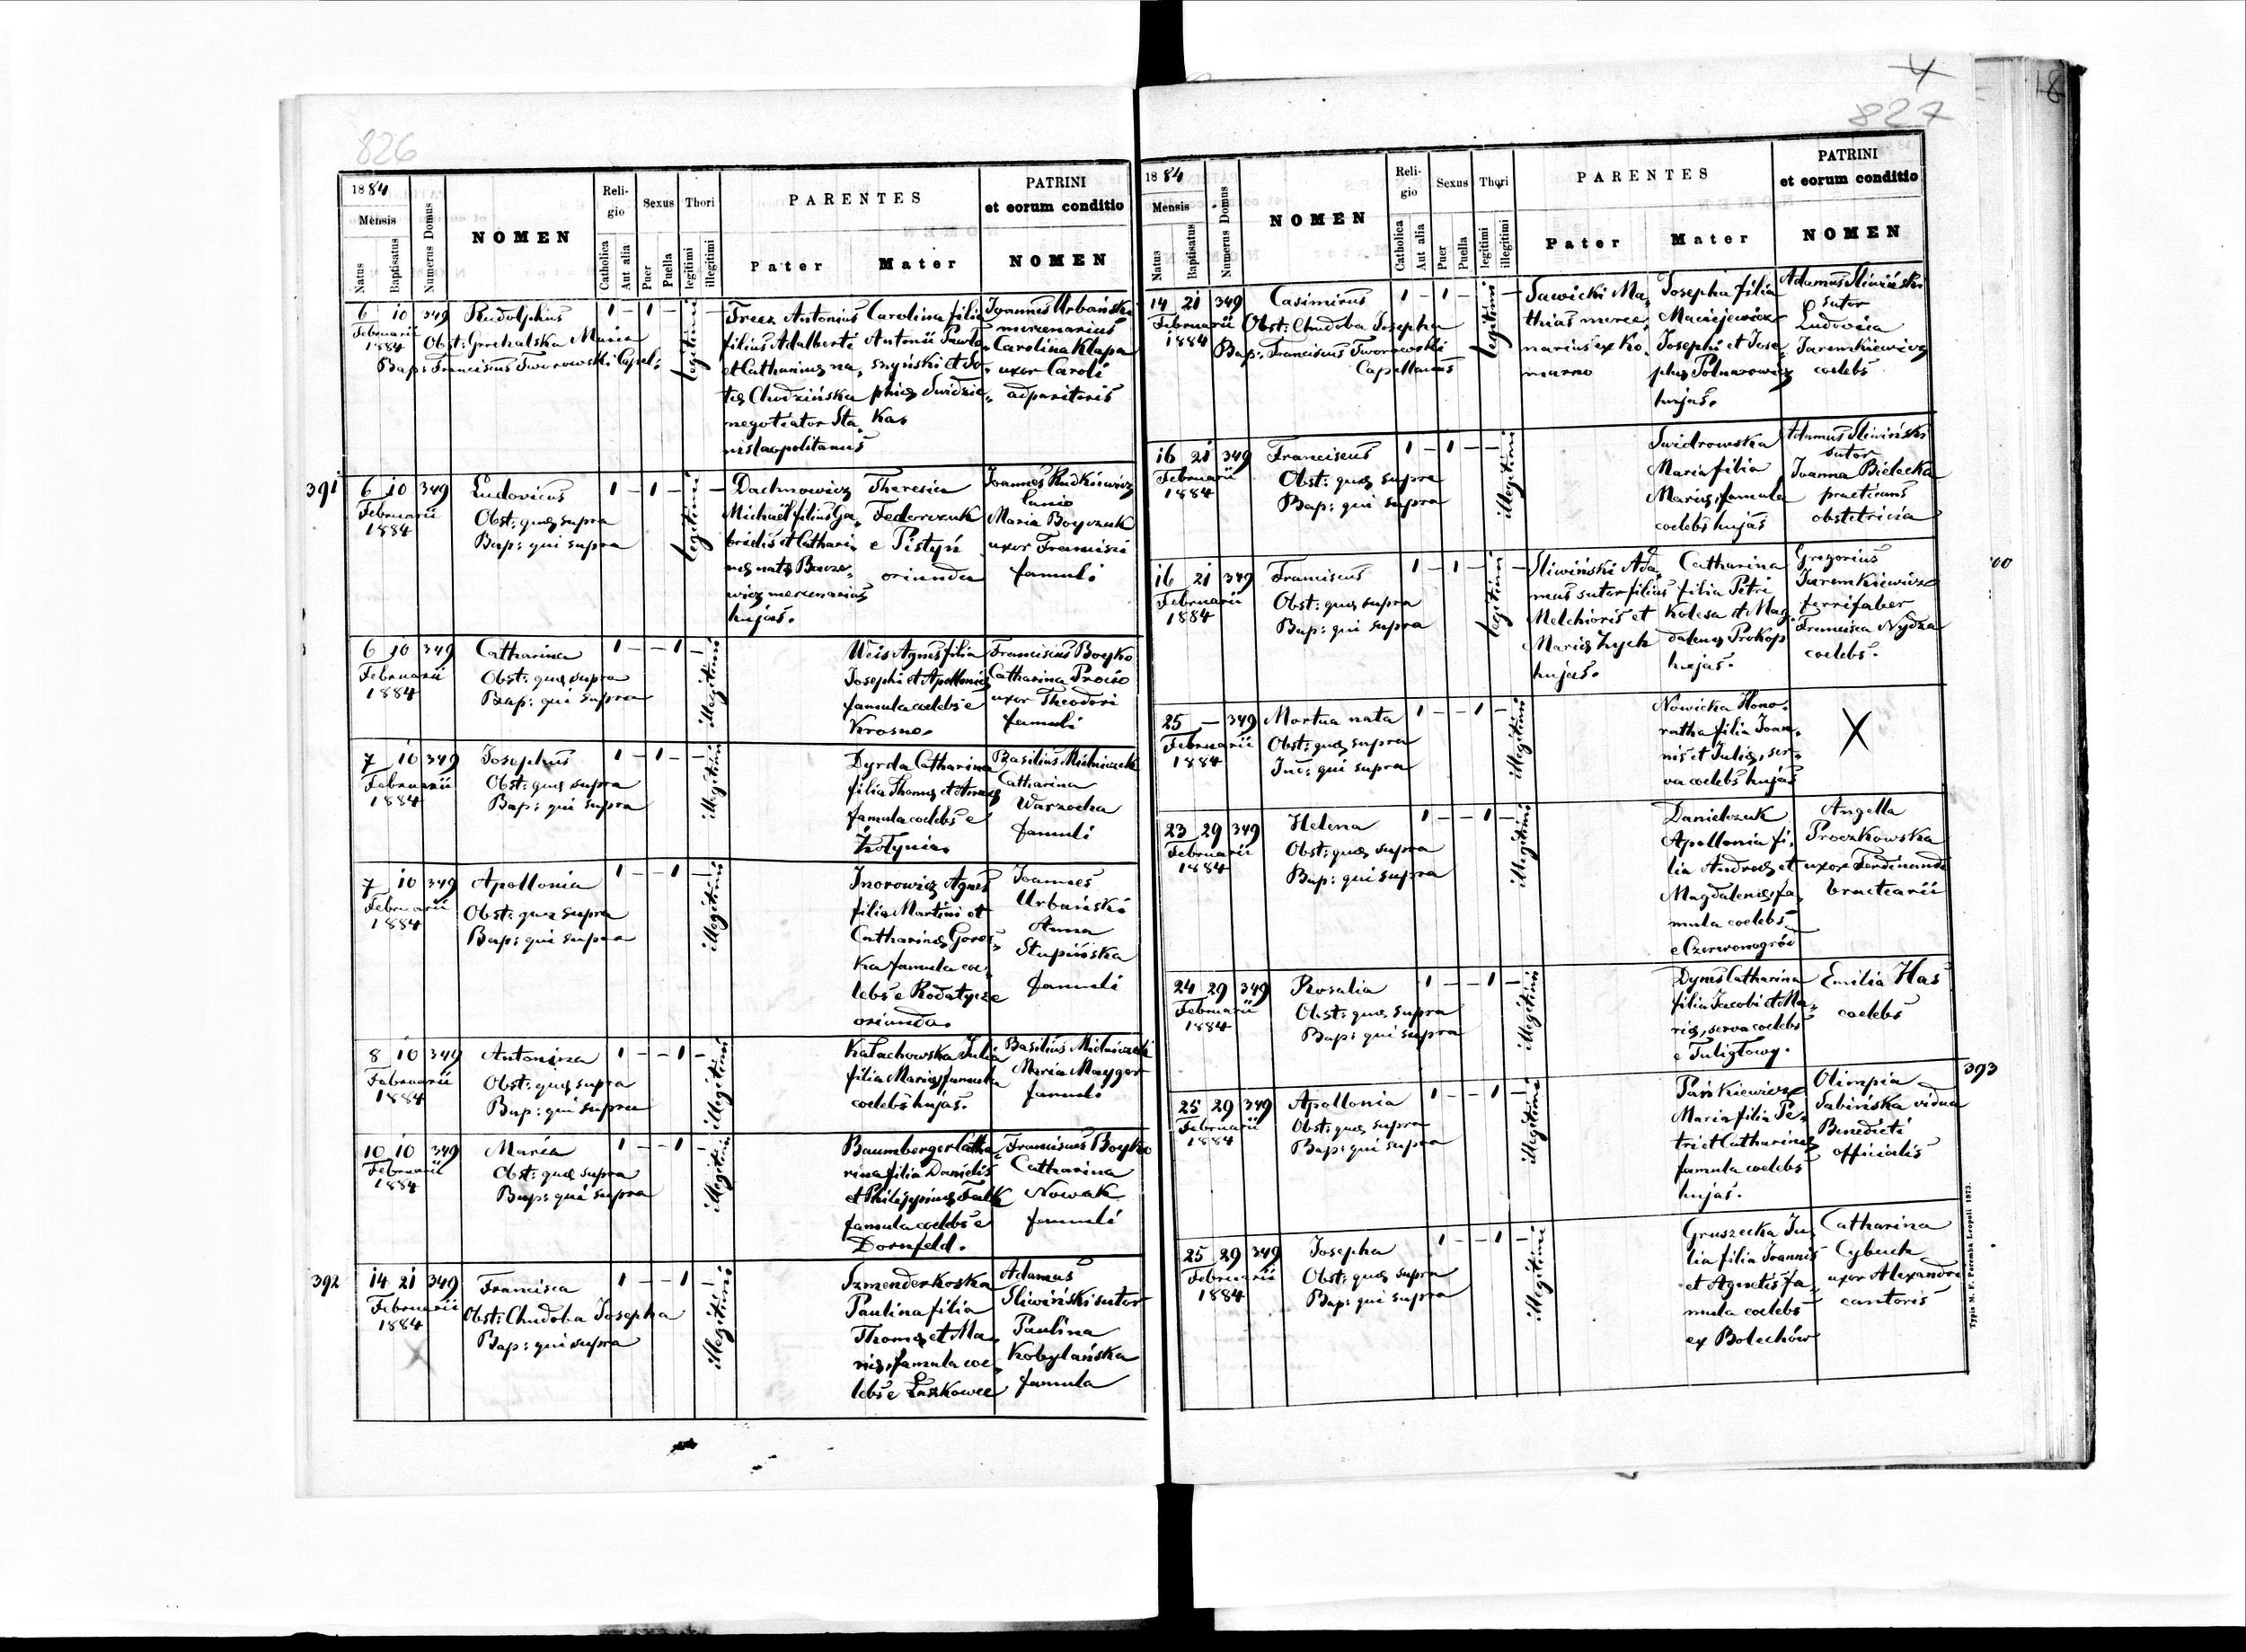 826
1884
Mensis
Natus
Baptisatus
Numerus Domus
NOMEN
Reli-
gio
Catholica
Aut alia
Sexus
Puer
Puella
Thori
legitimi
illegitimi
PARENTES
Pater
Mater
PATRINI
et eorum conditio
NOMEN
6 10 349
Februarii
1884
Rudolphus
Obst: Maria
Bap: Franciscus Tworowski Capel:
1 - 1 -
legitimi
Antonius
filius Adalberti
et Catharinæ na,
tæ Chodzińska
negotiator Sta,
nislaopolitanus
Carolina filia
Antonii Pawło
szyński et So,
phiæ
Ka.
Joannes Urbański
mercenarius
Carolina Klapa
uxor Caroli
adparitoris
391
6 10 349
Februarii
1884
Ludovicus
Obst: quæ supra
Bap: qui supra
1 - 1 -
legitimi
Dachnowicz
Michaël filius Ga,
brielis et Cathari,
næ natæ
wicz mercenarius
hujas.
Theresia
Federczuk
e Pistyń
oriunda
Joannes Rudkiewicz
lanio
Maria Boyczuk
uxor Francisci
famuli
6 10 349
Februarii
1884
Catharina
Obst: quæ supra
Bap: qui supra
1 - - 1 -
illegitimi
Weis Agnes filia
Josephi et Apolloniæ
famula coelebs e
Krosno.
Franciscus Boyko
Catharina
uxor Theodori
famuli
7 10 349
Februarii
1884
Josephus
Obst: quæ supra
Bap: qui supra
1 - 1 - -
illegitimi
Dyrda Catharina
filia Thomæ et Annæ
famula coelebs e
Żołynia.
Basilius Mielniczek
Catharina
Warzocha
famuli
7 10 349
Februarii
1884
Apollonia
Obst: quæ supra
Bap: qui supra
1 - - 1 -
illegitimi
Agnes
filia Martini et
Catharinæ
Ka famula coe,
lebs e Rodatycze
oriunda.
Joannes
Urbański
Anna
Stupińska
famuli
8 10 349
Februarii
1884
Antonina
Obst: quæ supra
Bap: qui supra
1 - - 1 -
illegitimi
Kałachowska Julia
filia Mariæ, famula
coelebs hujas.
Basilius Mielniczek
Maria Mayger
famuli
10 10 349
Februarii
1884
Maria
Obst: quæ supra
Bap: qui supra
1 - - 1 -
illegitimi
Baumberger Catha,
rina filia Danielis
et Philippinæ Falk
famula coelebs e
Dornfeld.
Franciscus Boyko
Catharina
Nowak
famuli
392
14 21 349
Februarii
1884
Francisca
Obst: Chudoba Josepha
Bap: qui supra
1 - - 1 -
illegitimi
Szmenderkoska
Paulina filia
Thomæ et Ma,
riæ, famula coe,
lebs e Łaszkowce
Adamus
Sliwiński sutor
Paulina
Kobylańska
famula
827
1884
Mensis
Natus
Baptisatus
Numerus Domus
NOMEN
Reli-
gio
Catholica
Aut alia
Sexus
Puer
Puella
Thori
legitimi
illegitimi
PARENTES
Pater
Mater
PATRINI
et eorum conditio
NOMEN
14 21 349
Februarii
1884
Casimirus
Obst: Chudoba Josepha
Bap: Franciscus Tworowski
Capellanus
1 - 1 -
legitimi
Sawicki Ma,
thias merce,
narius ex Ko,
marno
Josepha filia
Maciejewicz
Josephi et Jose,
phæ
hujas.
Adamus Sliwiński
sutor
Ludovica
Jaremkiewicz
coelebs
16 21 349
Februarii
1884
Franciscus
Obst: quæ supra
Bap: qui supra
1 - 1 - -
illegitimi
Swidrowska
Maria filia
Mariæ, famula
coelebs hujas
Adamus Sliwiński
sutor
Joanna Bielecka
practicans
obstetricia
16 21 349
Februarii
1884
Franciscus
Obst: quæ supra
Bap: qui supra
1 - 1 -
legitimi
Sliwiński Ada,
mus sutor filius
Melchioris et
Mariæ Zych
hujas.
Catharina
filia Petri
Kolesa et Mag,
dalenæ Prokop
hujas.
Gregorius
Jaremkiewicz
ferrifaber
Francisca Nydza
coelebs.
25 - 349
Februarii
1884
Mortua nata
Obst: quæ supra
Ind: qui supra
1 - - 1 -
illegitimi
Nowicka Hono,
ratha filia Joan,
nis et Juliæ, ser,
va coelebs hujas
X
23 29 349
Februarii
1884
Helena
Obst: quæ supra
Bap: qui supra
1 - - 1 -
illegitimi
Danielczuk
Apollonia fi,
lia Andreæ et
Magdalenæ, fa,
mula coelebs
e Czerwonogród
Angella
Proczkowska
uxor Ferdinandi
bractearii
24 29 349
Februarii
1884
Rosalia
Obst: quæ supra
Bap: qui supra
1 - - 1 -
illegitimi
Dyms Catharina
filia Jacobi et Ma,
riæ, serva coelebs
e Tuligłowy.
Emilia Has
coelebs
393
25 29 349
Februarii
1884
Apollonia
Obst: quæ supra
Bap: qui supra
1 - - 1 -
illegitimi
Pańkiewicz
Maria filia Pe,
tri et Catharinæ
famula coelebs
hujas.
Olimpia
Sabińska vidua
Benedicti
officialis
25 29 349
Februarii
1884
Josepha
Obst: quæ supra
Bap: qui supra
1 - - 1 -
illegitimi
Gruszecka Ju,
lia filia Joannis
et Agnetis, fa,
mula coelebs
ex Bolechów
Catharina
Cybuch
uxor Alexandri
cantoris
Typis M. F. Poremba Leopoli 1873.